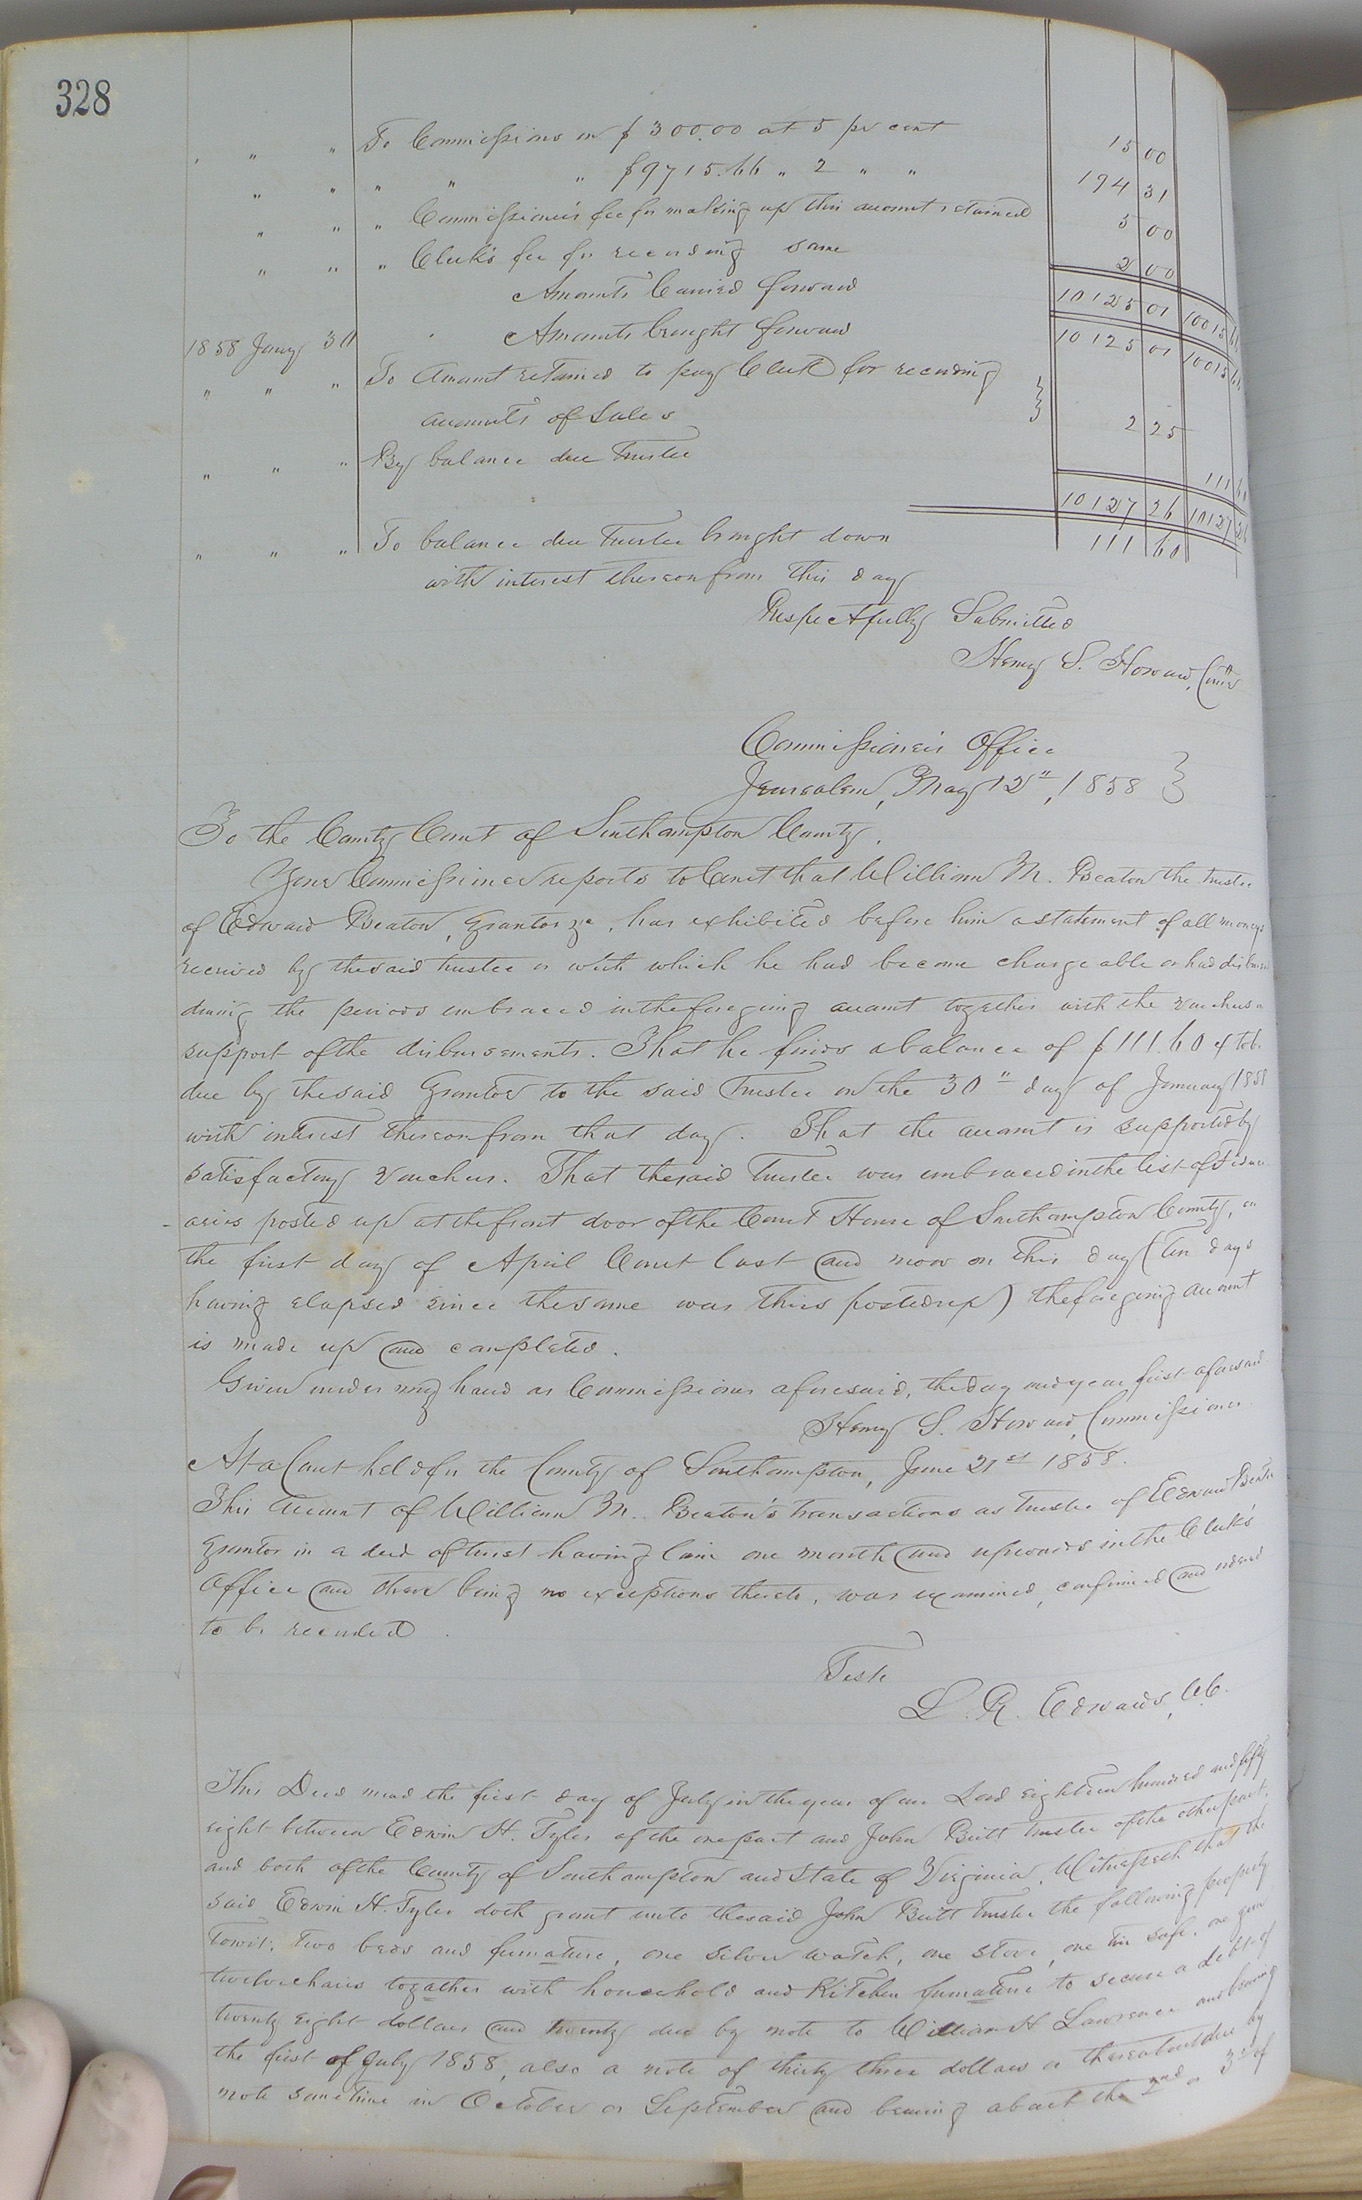 328
" " " To Commissions on $300.00 at 5 per cent 15 00
" " " " " $9715.66 " 2 " " 194 31
" " " Commissioner's fee for making up this account retained 5 00
" " " Clerk's fee for recording same 2 00
Amounts Carried forward 10125 01 10015 66
1858 Jany 30 Amounts brought forward 10125 01 10015 66
" " " To Amount retained to pay Clerk for recording
accounts of Sales 2 25
" " " By balance due Trustee 111 60
10127 26 10127 26
" " " To balance due Trustee brought down 111 60
with interest thereon from this day
Respectfully Submitted
Henry S. Howard, Comr
Commissioner's Office
Jerusalem, May 12", 1858
To the County Court of Southampton County.
Your Commissioner reports to Court that William M. Beaton the trustee
of Edward Beaton, grantor &c, has exhibited before him a statement of all moneys
received by the said trustee or with which he had become chargeable or had disbursed
during the periods embraced in the foregoing account together with the vouchers in
support of the disbursements. That he finds a balance of $111.60 to be
due by the said Grantor to the said Trustee on the 30" day of January 1858
with interest thereon from that day. That the account is supported by
satisfactory vouchers. That the said Trustee was embraced in the list of Fiduci-
aries posted up at the front door of the Court House of Southampton County, on
the first day of April Court last and now on this day (ten days
having elapsed since the same was thus posted up) the foregoing account
is made up and completed.
Given under my hand as Commissioner aforesaid, the day and year first aforesaid
Henry S. Howard, Commissioner.
At a Court held for the County of Southampton, June 21st 1858.
This Account of William M. Beaton's transactions as trustee of Edward Beaton
grantor in a deed of trust having lain one month and upwards in the Clerk's
Office and there being no exceptions thereto, was examined, confirmed and ordered
to be recorded.
Teste
L. R. Edwards, CC.
This Deed mad the first day of July in the year of our Lord eighteen hundred and fifty
eight between Edwin H. Tyler of the one part and John Britt trustee of the other part,
and both of the County of Southampton and State of Virginia, Witnesseth that the
said Edwin H. Tyler doth grant unto the said John Britt Trustee the following property
Towit; Two beds and furnature, one silver watch, one stove, one tin safe, one gun
twelve chairs togather with household and Kitchen furnature to secure a debt of
twenty eight dollars and twenty due by note to William H Lawrence and bearing
the first of July 1858, also a note of thirty three dollars or thereabout due by
note sometime in October or September and bearing about the 2nd or 3rd of